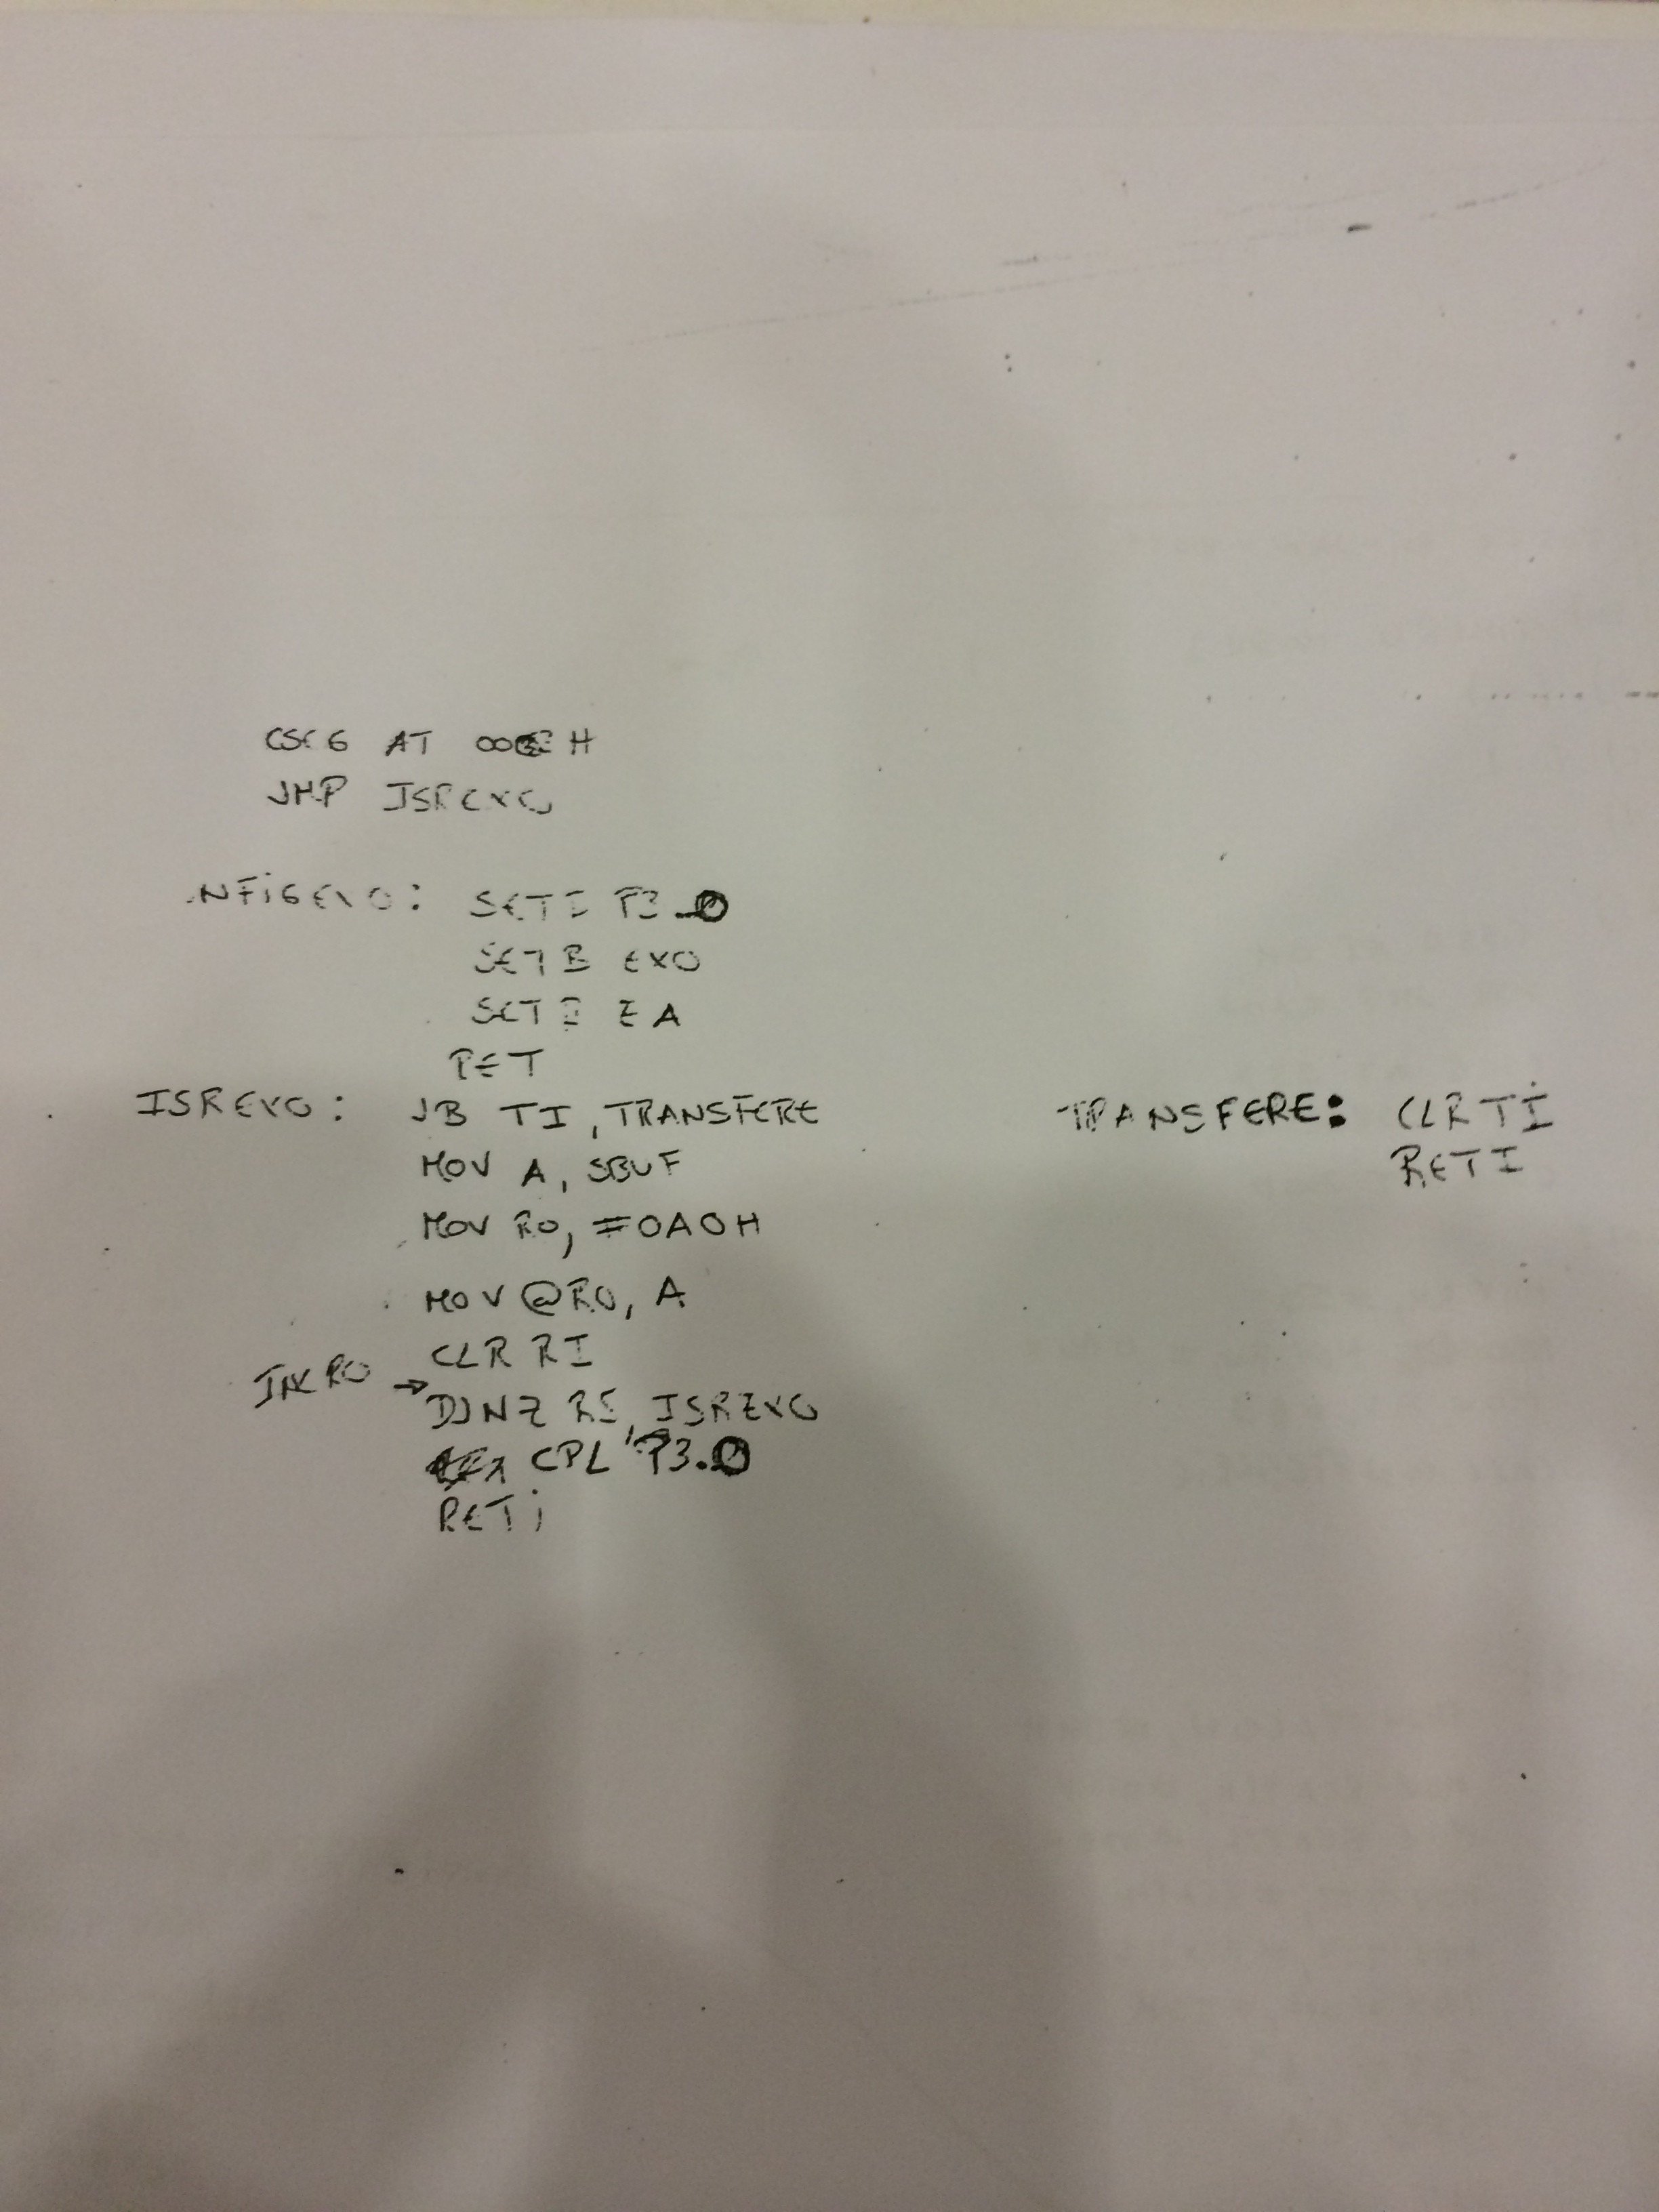 CSEG AT 00 H
JMP ISREX0
NFiGEX0: SETB P3.0
SETB EX0
SETB EA
RET
ISREX0: JB TI, TRANSFERE
MOV A, SBUF
MOV R0, #0A0H
MOV @R0, A
CLR RI
INC R0 →
DJNZ R5, ISREX0
CPL P3.0
RETi
TRANSFERE: CLR TI
RETI